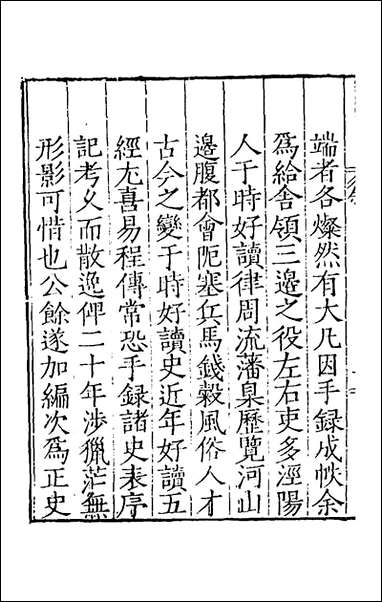 端者各燦然有大凡因手録成帙余
爲給舎領三邊之役左右吏多涇陽
人于時好讀律周流藩臬歷覽河山
邊腹都會阨塞兵馬錢穀風俗人才
古今之變于時好讀史近年好讀五
經尤喜易程傳常恐手録諸史表序
記考久而散逸俾二十年涉獵茫無
形影可惜也公餘遂加編次爲正史